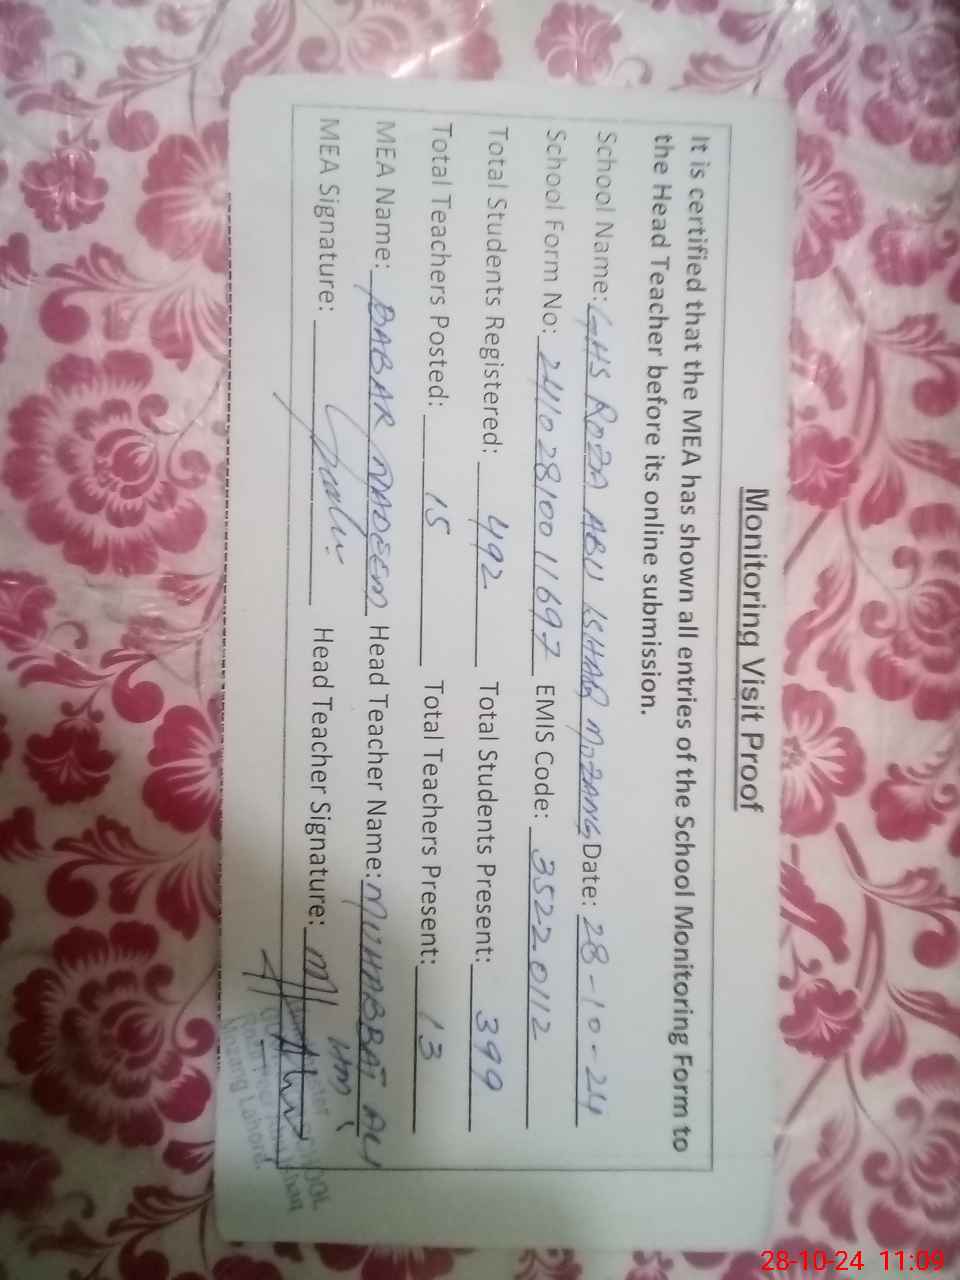 Monitoring Visit Proof
It is certified that the MEA has shown all entries of the School Monitoring Form to
the Head Teacher before its online submission.
School Name: GHS ROZA ABU ISHAQ MOZANG Date: 28-10-24
School Form No: 24102810011697 EMIS Code: 35220112
Total Students Registered: 492 Total Students Present: 399
Total Teachers Posted: 15 Total Teachers Present: 13
MEA Name: BABAR NADEEM Head Teacher Name: MUHABBAT ALI
HM
MEA Signature: Head Teacher Signature:
Mozang Lahore.
28-10-24 11:09